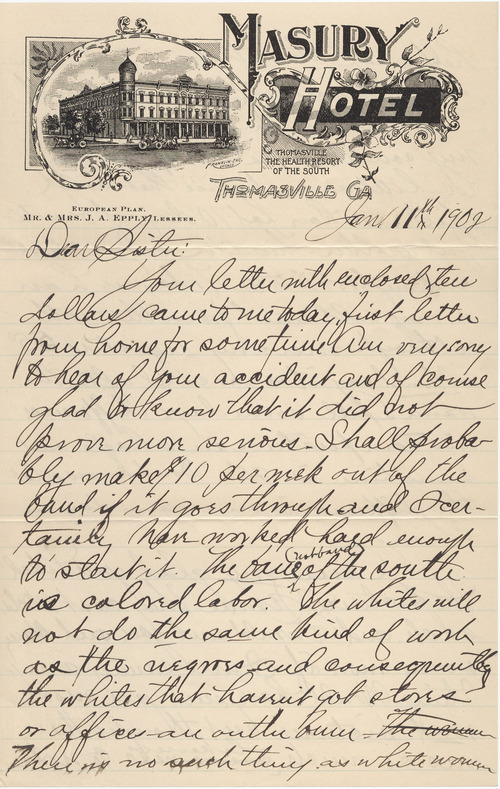 MASURY
HOTEL
THOMASVILLE
THE HEALTH RESORT
OF THE SOUTH
THOMASVILLE GA
EUROPEAN PLAN.
MR. & MRS. J. A. EPPLY LESSEES.
Jan 11th 1902
Dear Sister:
Your letter with enclosed ten
dollars came to me today, first letter
from home for sometime Am very sorry
to hear of your accident and of course
glad to know that it did not
prove more serious. Shall proba-
bly make $10 per week out of the
band if it goes through and I cer-
tainly have worked hard enough
to start it. The bane (not band) of the south
is colored labor. The whites will
not do the same kind of work
as the negroes and consequently
the whites that haven't got stores
or offices are on the bum - The women
There is no such thing as white women